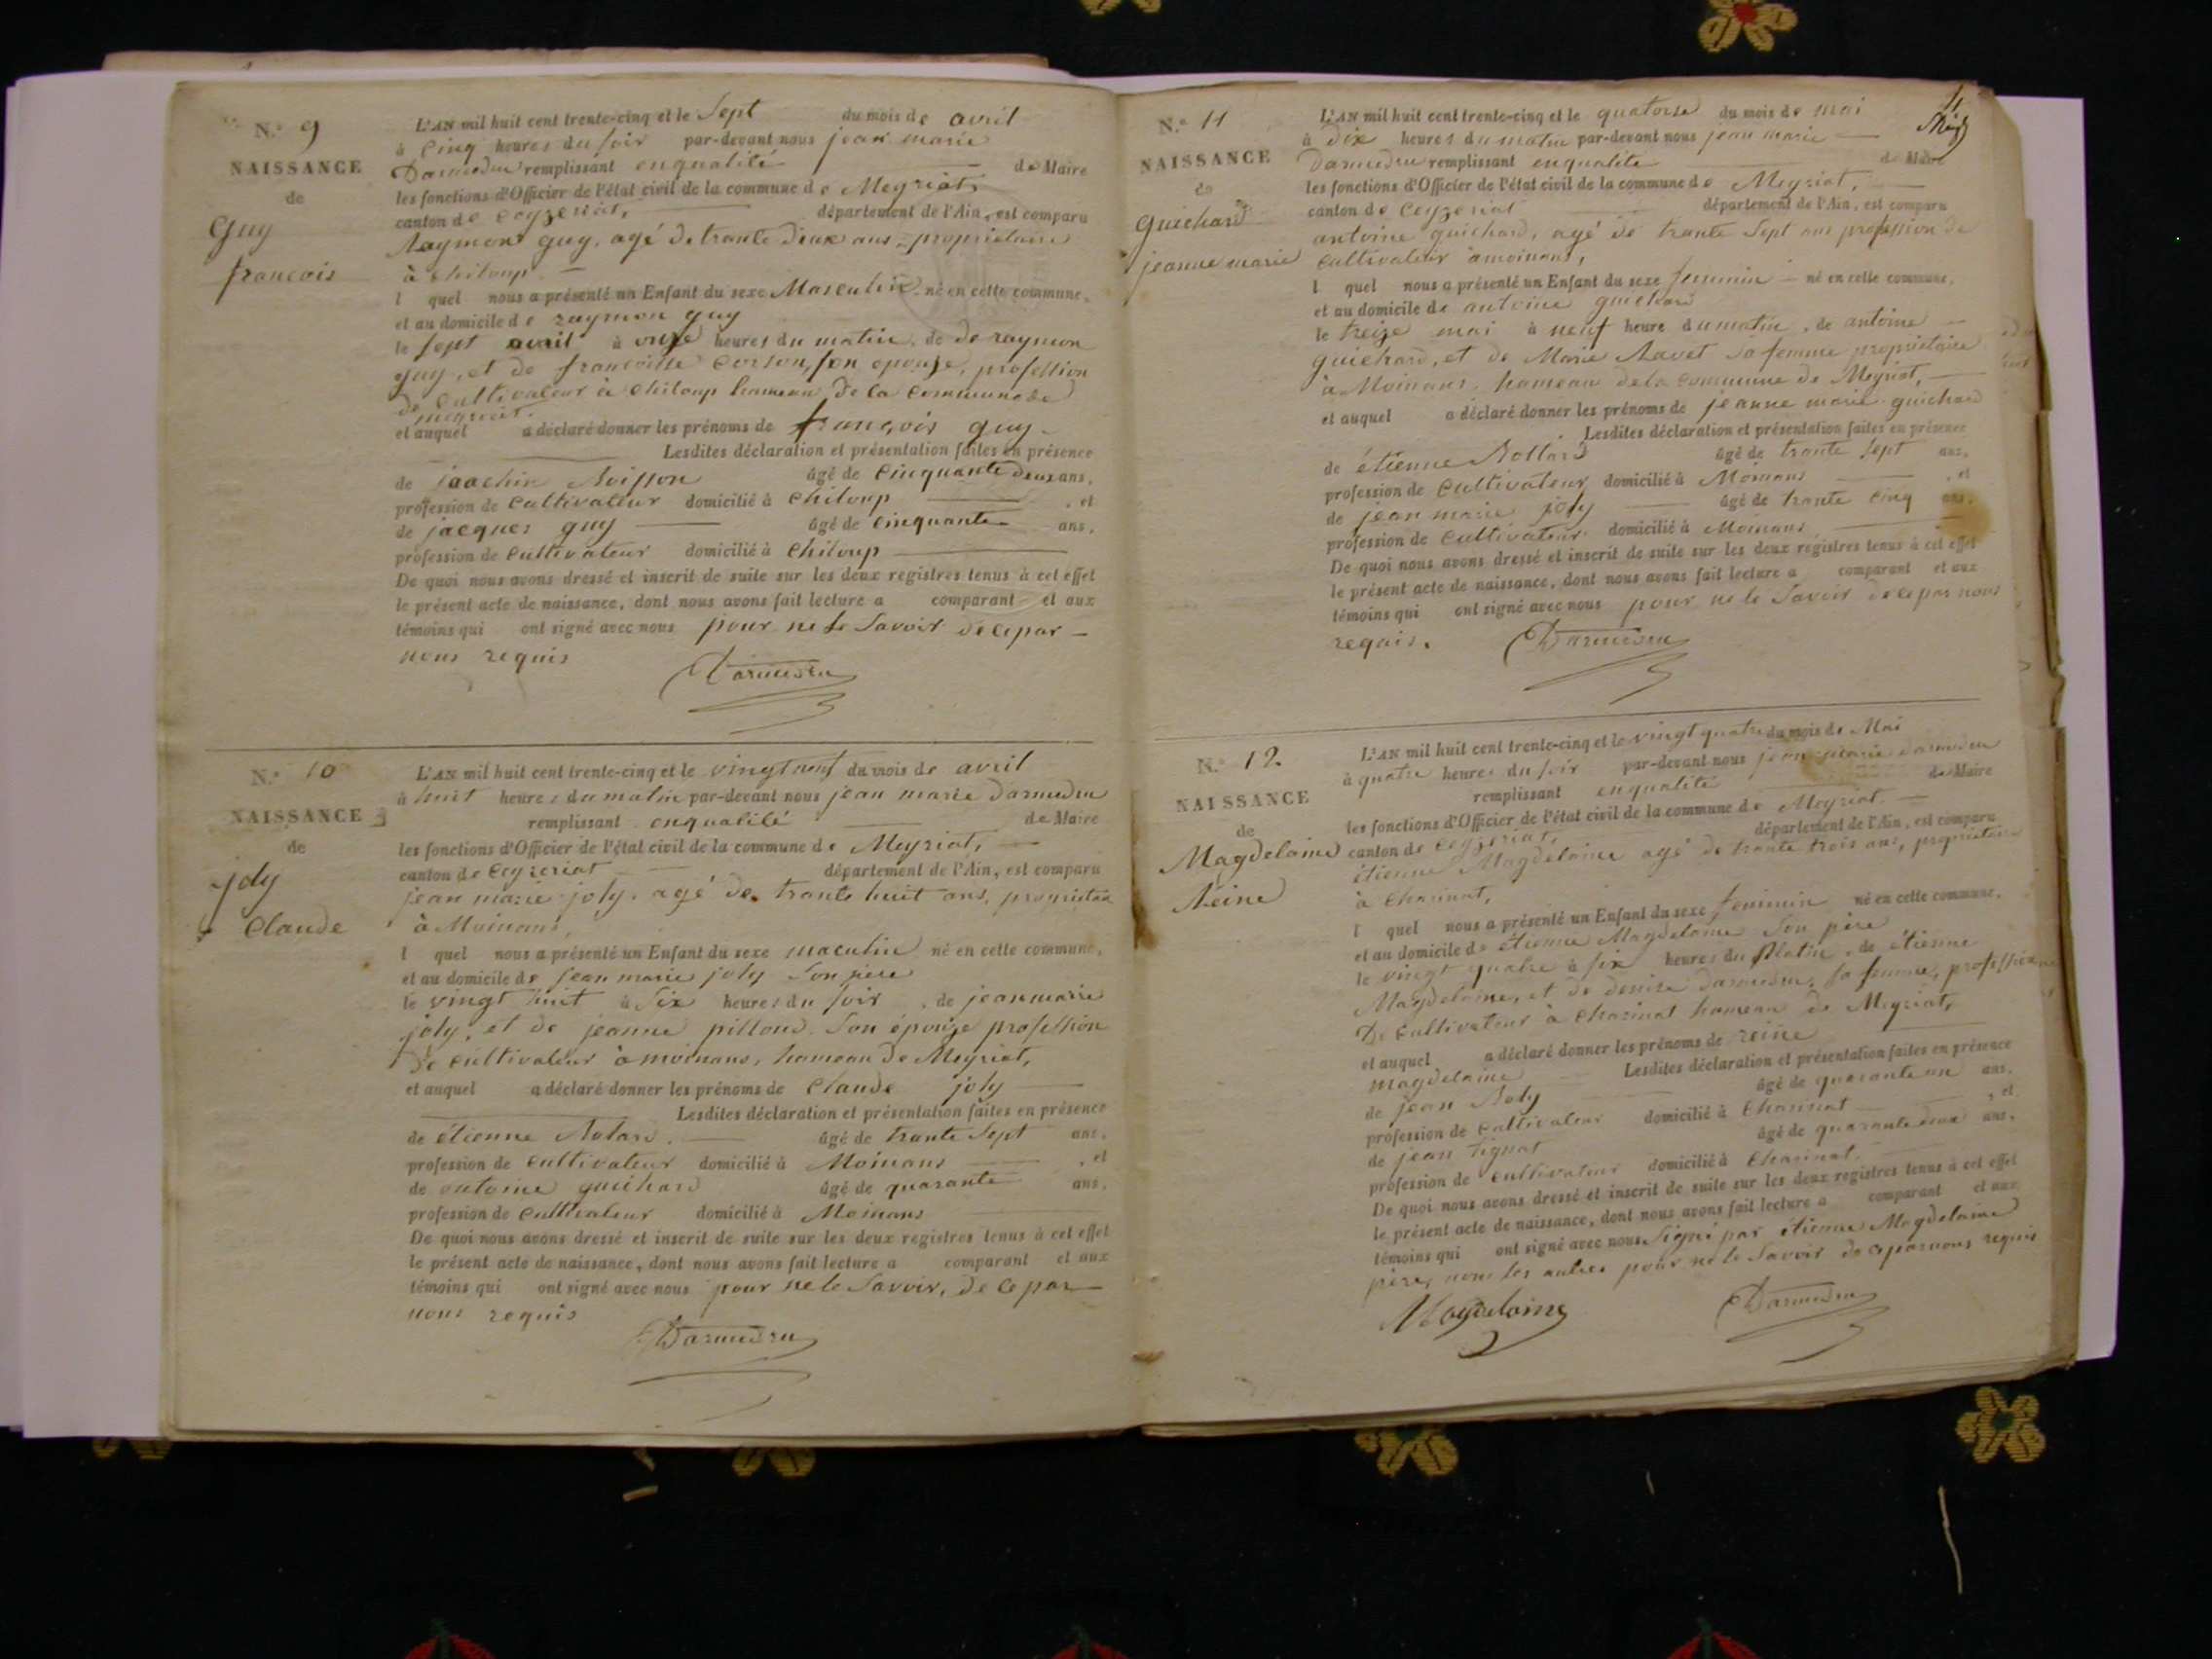 N.° 9
NAISSANCE
de
Guy
francois
L'AN mil huit cent trente-cinq et le Sept du mois de avril
à Cinq heures du soir par-devant nous jean marie
Darmedru remplissant enqualité de Maire
les fonctions d'Officier de l'état civil de la commune de Meyriat,
canton de Ceyzeriat, département de l'Ain, est comparu
Raymon guy, agé de trante deux ans, propriétaire
à chiloup.
l quel nous a présenté un Enfant du sexe Masculin né en cette commune,
et au domicile de raymon guy
le sept avril à onze heures du matin, de de raymon
guy, et de francoise Corson, son epouse, profession
de Cultivateur à chiloup hameau de la Commune de
meyriat.
et auquel a déclaré donner les prénoms de françois guy
Lesdites déclaration et présentation faites en présence
de joachin Moisson âgé de Cinquante deux ans,
profession de Cultivateur domicilié à Chiloup , et
de jacques guy âgé de cinquante ans,
profession de Cultivateur domicilié à Chiloup
De quoi nous avons dressé et inscrit de suite sur les deux registres tenus à cet effet
le présent acte de naissance, dont nous avons fait lecture a comparant et aux
témoins qui ont signé avec nous pour ne le Savoir de ce par
nous requis
Darmedru
N.° 10
NAISSANCE
de
joly
Claude
L'AN mil huit cent trente-cinq et le vingt neuf du mois de avril
à huit heures du matin par-devant nous jean marie Darmedru
remplissant enqualité de Maire
les fonctions d'Officier de l'état civil de la commune de Meyriat,
canton de Ceyzeriat département de l'Ain, est comparu
jean marie joly, agé de trante huit ans, propriétaire
à Moinans,
l quel nous a présenté un Enfant du sexe maculin né en cette commune,
et au domicile de jean marie joly Son père
le vingt huit à Six heures du soir , de jean marie
joly, et de jeanne pilloud. Son épouse profession
de cultivateur à moinans, hameau de Meyriat,
et auquel a déclaré donner les prénoms de Claude joly
Lesdites déclaration et présentation faites en présence
de étienne Rolard. âgé de trante Sept ans,
profession de cultivateur domicilié à Moinans , et
de antoine guichard âgé de quarante ans,
profession de Cultivateur domicilié à Moinans
De quoi nous avons dressé et inscrit de suite sur les deux registres tenus à cet effet
le présent acte de naissance, dont nous avons fait lecture a comparant et aux
témoins qui ont signé avec nous pour ne le Savoir, de ce par
nous requis
Darmedru
11
N.° 11
NAISSANCE
de
Guichard
jeanne marie
L'AN mil huit cent trente-cinq et le quatorse du mois de mai
à Dix heures du matin par-devant nous jean marie
Darmedru remplissant enqualité de Maire
les fonctions d'Officier de l'état civil de la commune de Meyriat,
canton de Ceyzeriat département de l'Ain, est comparu
antoine guichard, agé de trante Sept ans profession de
Cultivateur à moinans,
l quel nous a présenté un Enfant du sexe feminin né en cette commune,
et au domicile de antoine guichard
le treize mai à neuf heure du matin, de antoine
guichard, et de Marie Ravet Sa femme propriétaire
à Moinans, hameau de la commune de Meyriat,
et auquel a déclaré donner les prénoms de jeanne marie guichard
Lesdites déclaration et présentation faites en présence
de étienne Rollard âgé de trante Sept ans,
profession de Cultivateur domicilié à Moinans , et
de jean marie joly âgé de trante Cinq ans,
profession de Cultivateur domicilié à Moinans
De quoi nous avons dressé et inscrit de suite sur les deux registres tenus à cet effet
le présent acte de naissance, dont nous avons fait lecture a comparant et aux
témoins qui ont signé avec nous pour ne le Savoir de ce par nous
requis.
Darmedru
N.° 12
NAISSANCE
de
Magdelaine
Reine
L'AN mil huit cent trente-cinq et le vingt quatre du mois de Mai
à quatre heures du soir par-devant nous jean marie darmedru
remplissant enqualité de Maire
les fonctions d'Officier de l'état civil de la commune de Meyriat.
canton de Ceyzeriat, département de l'Ain, est comparu
étienne Magdelaine agé de trante trois ans, propriétaire
à Charinat,
l quel nous a présenté un Enfant du sexe feminin né en cette commune,
et au domicile de étienne Magdelaine Son père
le vingt quatre à six heures du Matin, de étienne
Magdelaine, et de denise darmedru, sa femme, profession
De Cultivateur à Charinat hameau de Meyriat,
et auquel a déclaré donner les prénoms de reine
magdelaine Lesdites déclaration et présentation faites en présence
de jean Roly âgé de quarante un ans,
profession de Cultivateur domicilié à Charinat , et
de jean tignat âgé de quarante deux ans,
profession de Cultivateur domicilié à Charinat.
De quoi nous avons dressé et inscrit de suite sur les deux registres tenus à cet effet
le présent acte de naissance, dont nous avons fait lecture a comparant et aux
témoins qui ont signé avec nous Signé par étienne Magdelaine
père, non les autres pour ne le Savoir de ce par nous requis
Magdelaine Darmedru